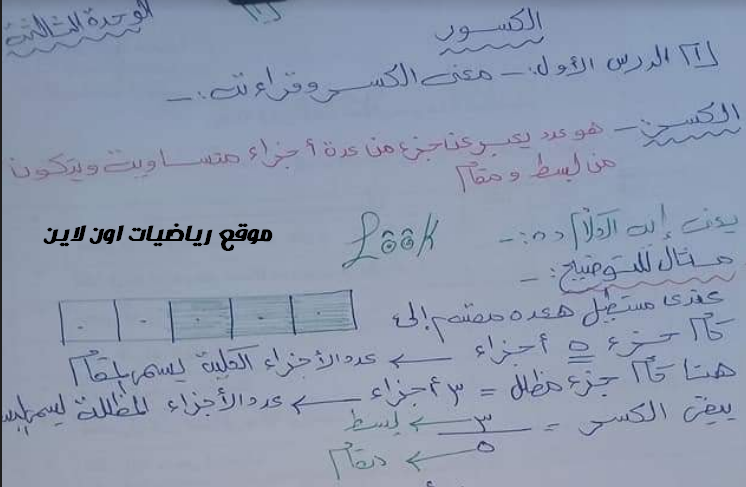 الوحدة الثالثة
١
الكسور
١ الدرس الأول:- معنى الكسر وقراءته:-
الكسر:- هو عدد يعبر عن جزء من عدة أجزاء متساوية ويتكون
من بسط ومقام
يعنى إيه الكلام ده:-
Look
موقع رياضيات اون لاين
مثال للتوضيح:-
عندى مستطيل هعده مقسم إلى
كام جزء = ٥ أجزاء ← عدد الأجزاء الكلية يسمى بالمقام
هنا كام جزء مظلل = ٣ أجزاء ← عدد الأجزاء المظللة يسمى بسط
يبقى الكسر = ٣ ← بسط
٥ ← مقام